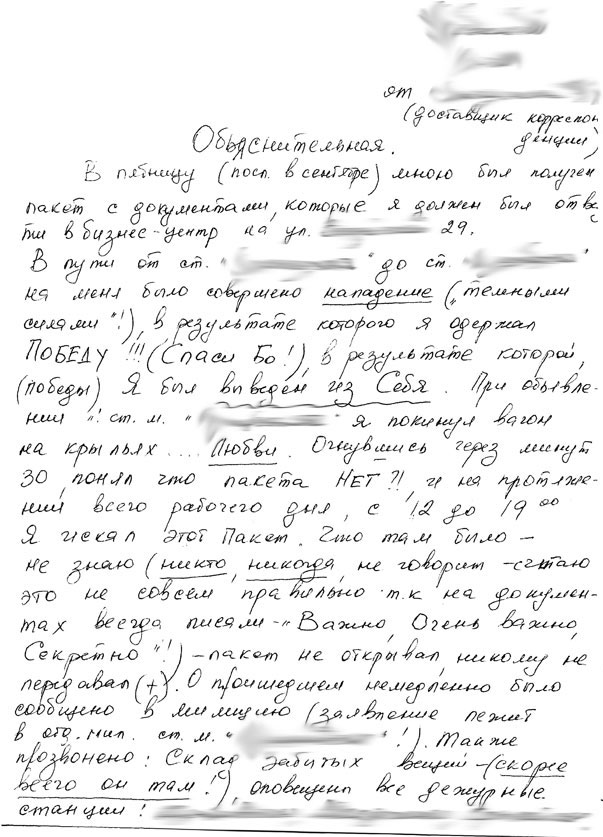 от
(доставщик корреспон
денции)
Объяснительная.
В пятницу (посл. в сентябре) мною был получен
пакет с документами, которые я должен был отвез
ти в бизнес-центр на ул. 29.
В пути от ст. „ " до ст. „ "
на меня было совершено нападение („темными
силами"!), в результате которого я одержал
ПОБЕДУ!!! (Спаси Бо!), в результате которой,
(победы) Я был выведен из Себя. При объявле-
нии "! ст. м. " " я покинул вагон
на крыльях .... Любви. Очнувшись через минут
30, понял что пакета НЕТ?!, и на протяже-
нии всего рабочего дня, с 12 до 19 00
Я искал этот Пакет. Что там было –
не знаю (никто, никогда, не говорит - считаю
это не совсем правильно т.к на докумен-
тах всегда писали - „Важно, Очень важно,
Секретно"!) - пакет не открывал, никому не
передавал (+). О происшедшем немедленно было
сообщено в милицию (заявление лежит
в отд. мил. ст. м. „ "!). Также
прозвонено: Склад забытых вещей - (скорее
всего он там!), оповещены все дежурные
станции: